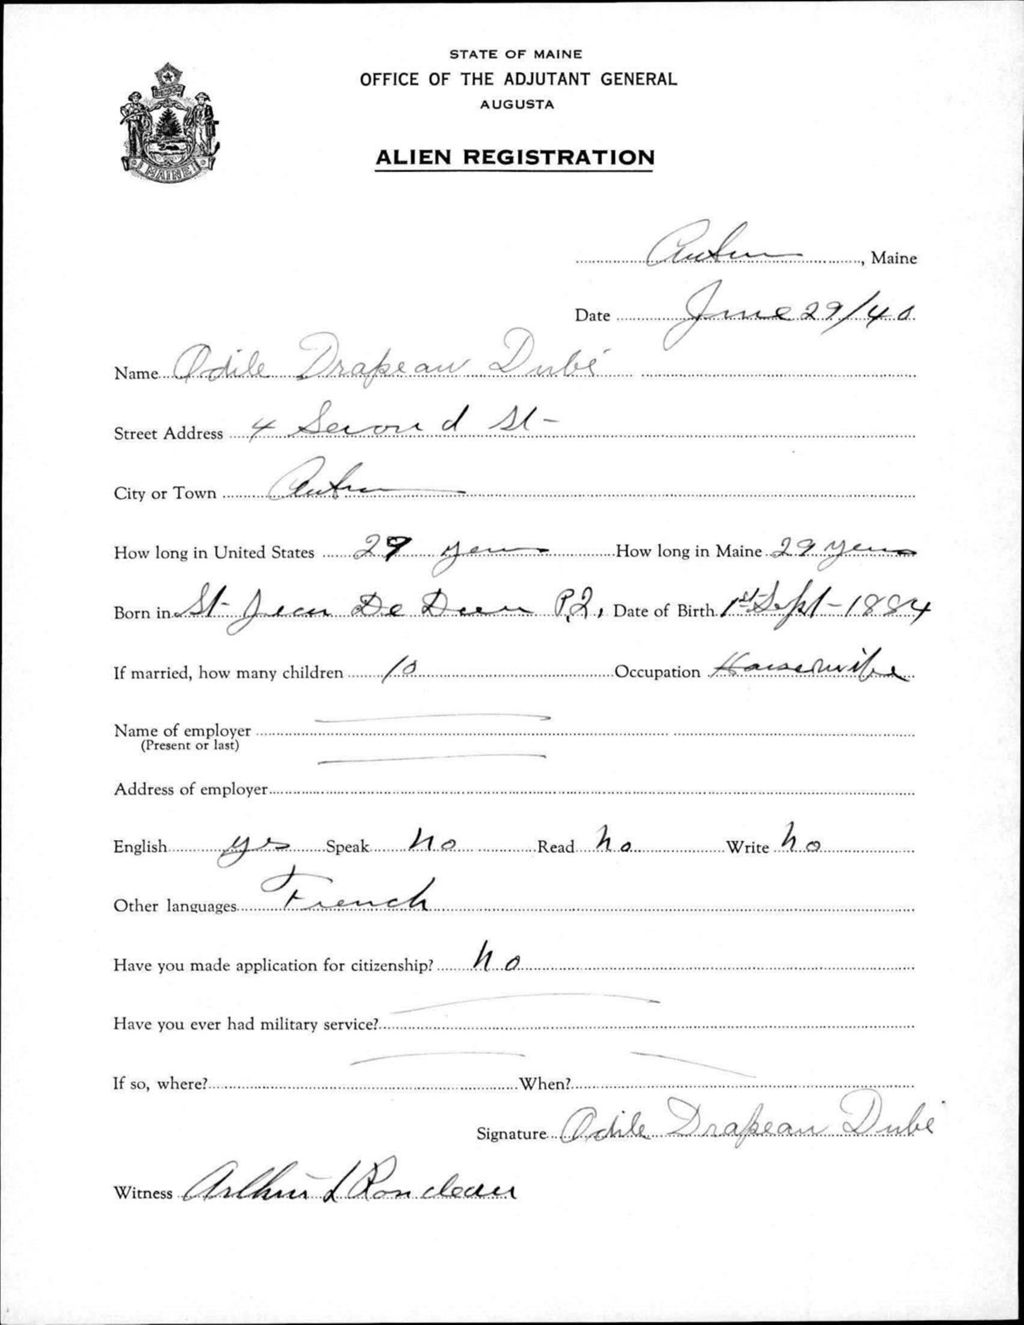 STATE OF MAINE
OFFICE OF THE ADJUTANT GENERAL
AUGUSTA
ALIEN REGISTRATION
MAINE
Auburn, Maine
Date June 29/40
Name Odile Drapeau Dubé
Street Address 4 Second St-
City or Town Auburn
How long in United States 29 years How long in Maine 29 years
Born in St- Jean De Dieu P.Q, Date of Birth 1st Sept-1884
If married, how many children 10 Occupation Housewife
Name of employer
(Present or last)
Address of employer
English yes Speak No Read No Write No
Other languages French
Have you made application for citizenship? No
Have you ever had military service?
If so, where? When?
Signature Odile Drapeau Dubé
Witness Arthur L Rondeau